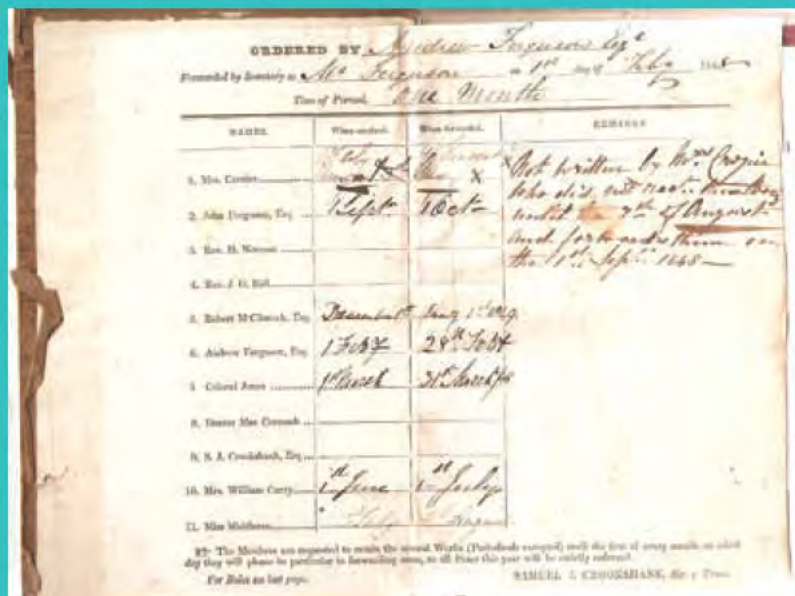 ORDERED BY Andrew Ferguson Esqr
Forwarded by Secretary to Mr Ferguson on 1st day of Feby 1848
Time of Perusal, One Month
NAMES. When received. When forwarded. REMARKS
1. Mrs. Crozier X X Not written by Mrs Crozier
who did not them
until the 7th of August
and forwarded them on
the 1st Septr 1848—
2. John Ferguson, Esq. 1 Septr. 1 Octr
3. Rev. H.
4. Rev. J. G.
5. Robert M'Clintock, Esq. 1st 1849
6. Andrew Ferguson, Esq. 1 Feby 28th Feby
7. Colonel 1st March 31st March
8. Doctor Mac Cormack
9. S. J. Crookshank, Esq.
10. Mrs. William Curry 1st June 1st July
11. Miss Matthews
The Members are requested to retain the several Works (Periodicals excepted) until the first of every month, on which
day they will please be particular in forwarding them, as all Fines this year will be strictly enforced.
For Rules see last page. SAMUEL J. CROOKSHANK, Sec. & Treas.